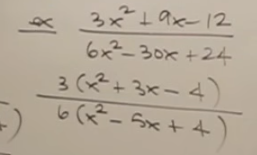 ex 3x² + 9x - 12 / 6x² - 30x + 24
3 (x² + 3x - 4) / 6 (x² - 5x + 4)